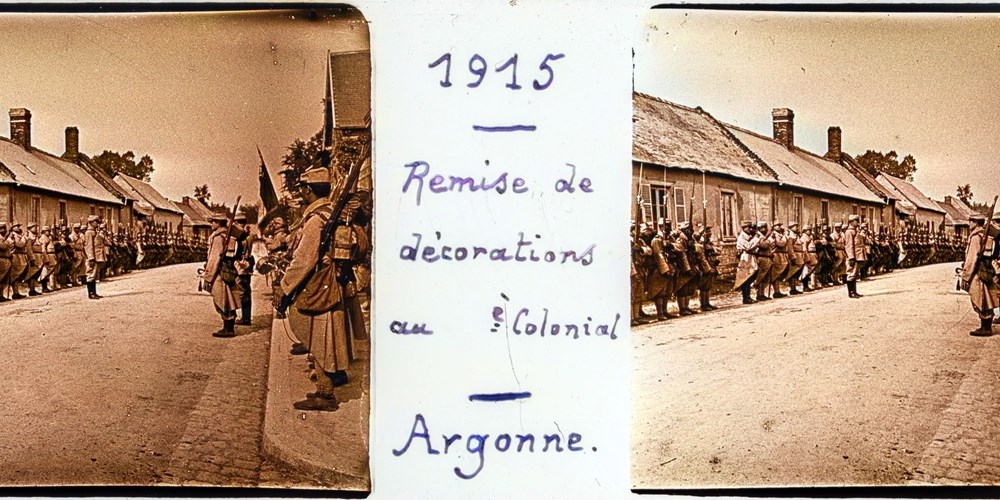 1915
Remise de
décorations
au è Colonial
Argonne.